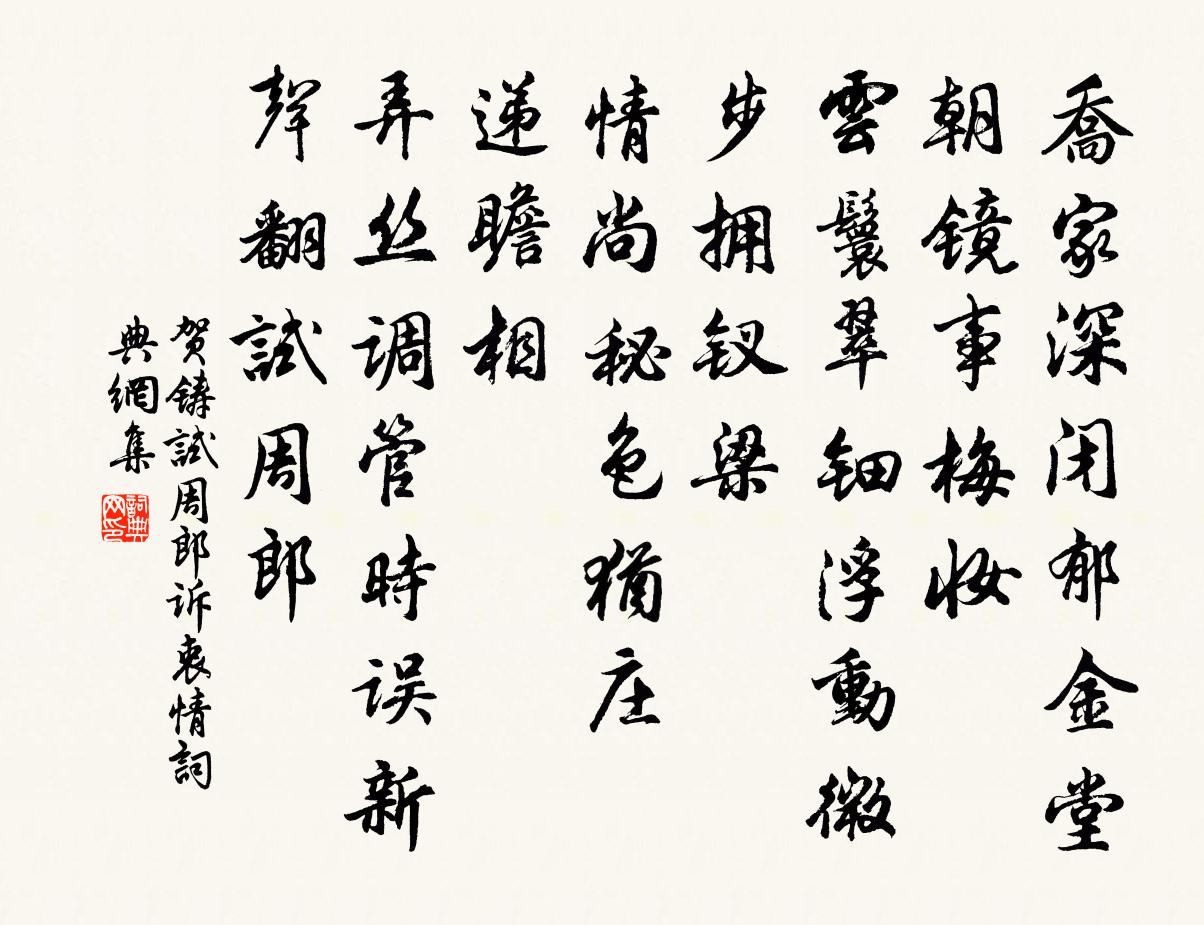 喬家深闭郁金堂
朝镜事梅妆
雲鬟翠钿浮動微
步拥钗梁
情尚秘色猶庄
递瞻相
弄丝调管時误新
聲翻試周郎
贺鑄試周郎诉衷情詞
典網集
詞典网印